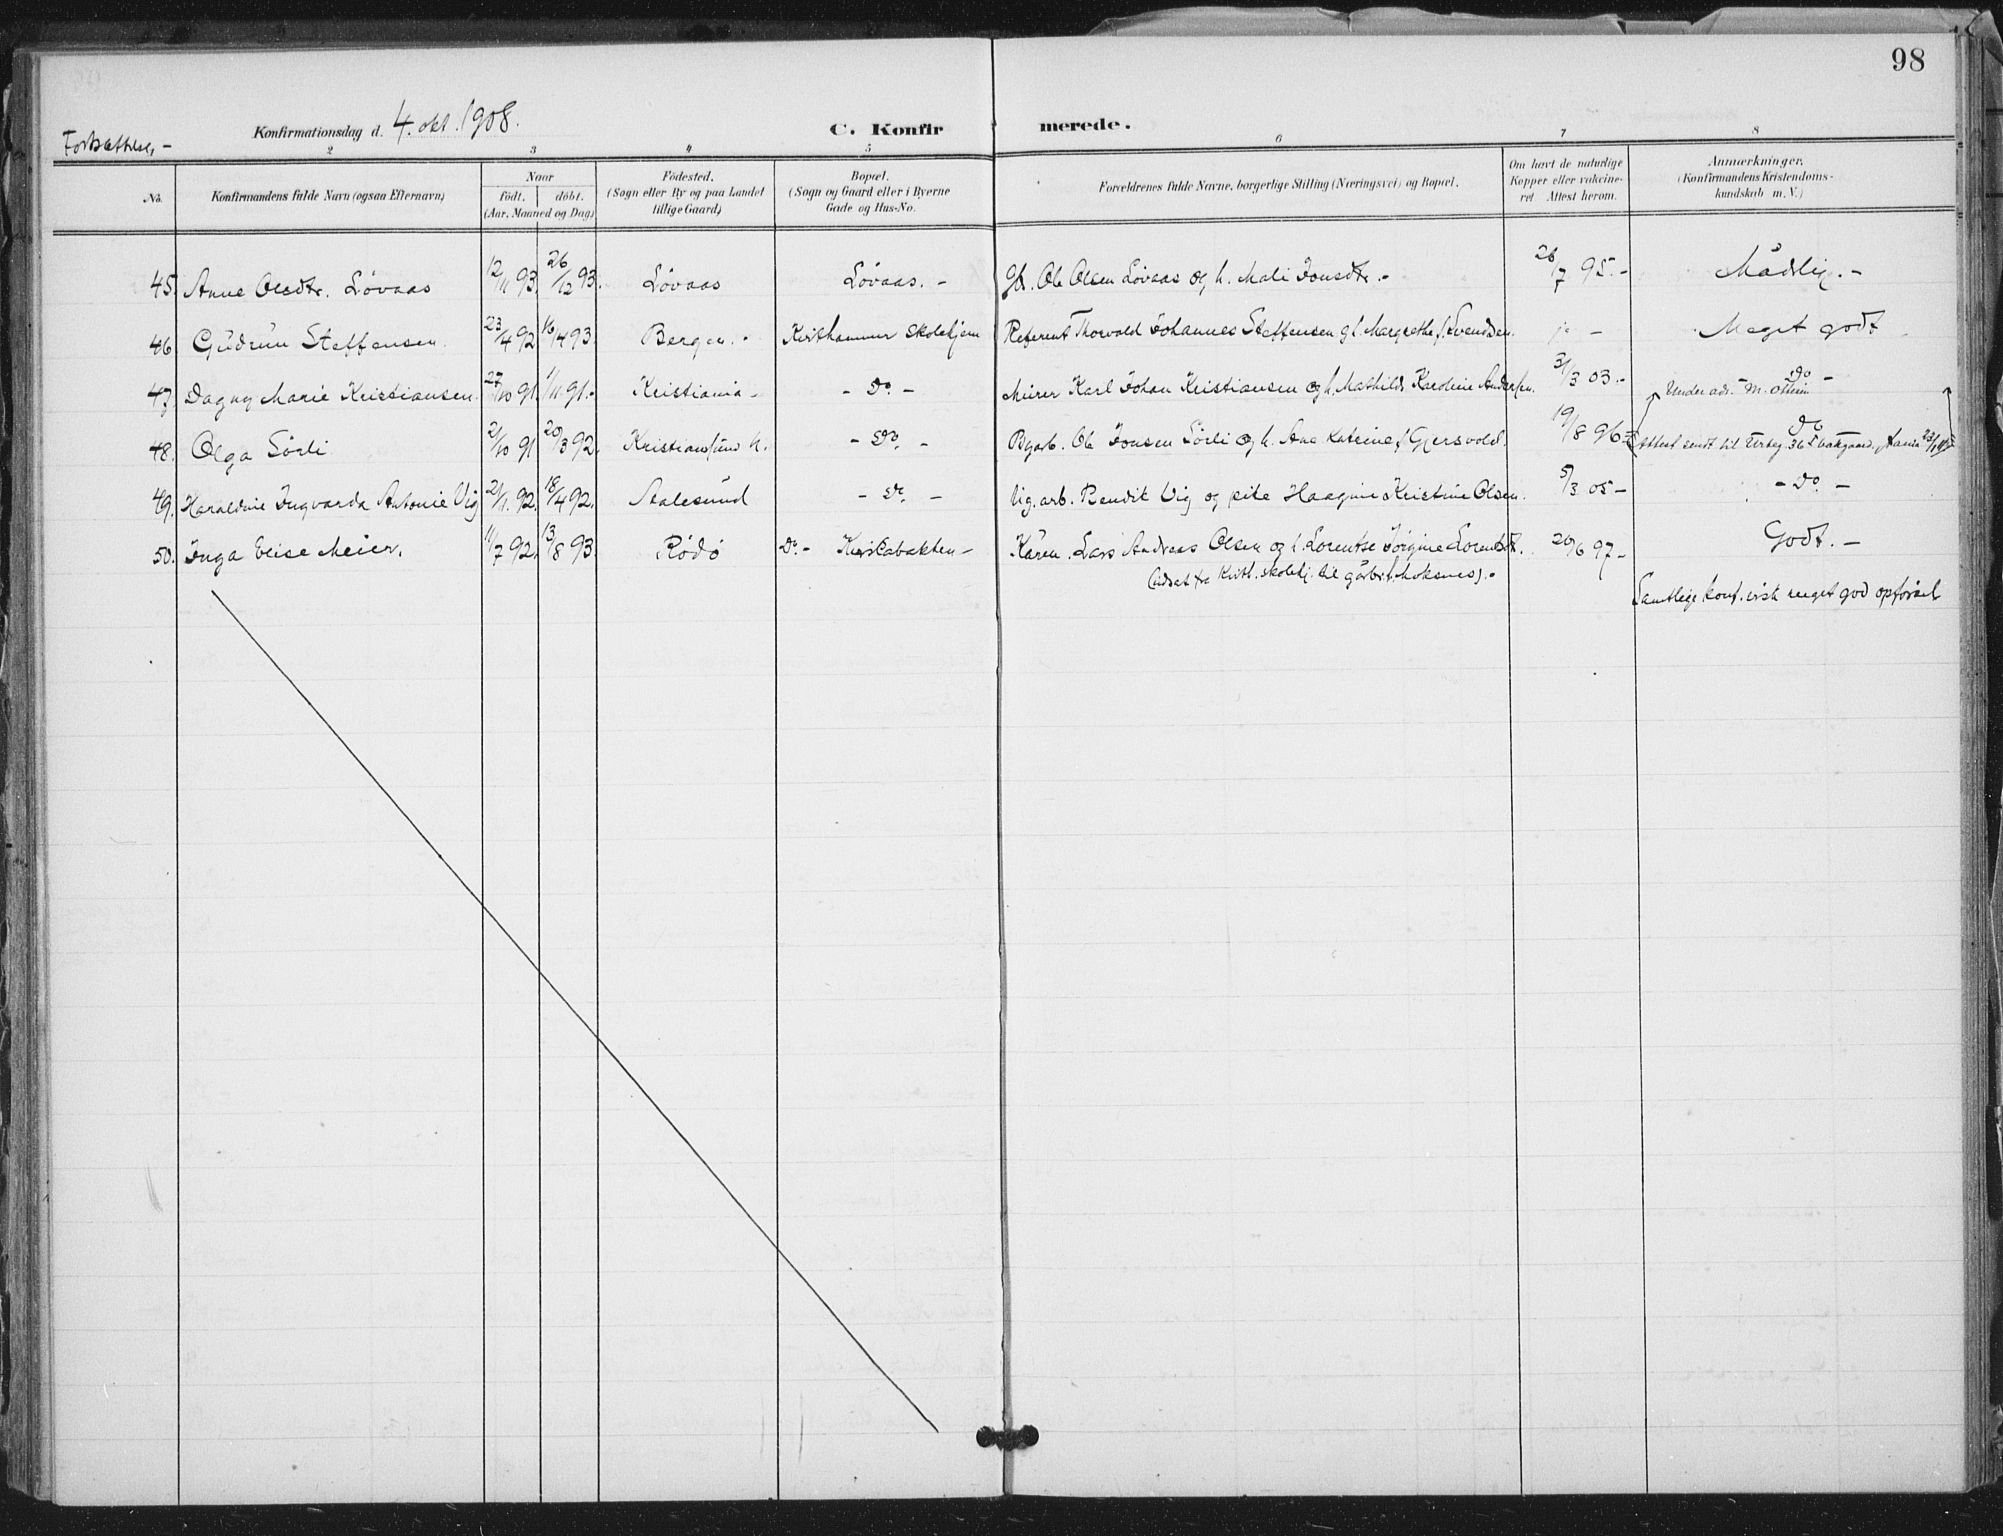 98
Fortsættelse - Konfirmationsdag d. 4. okt. 1908. C. Konfir merede.
2 3 4 5 6 7 8
No. Konfirmandens fulde Navn (ogsaa Efternavn) Naar født. døbt. (Aar, Maaned og Dag) Födested. (Sogn eller By og paa Landet tillige Gaard) Bopæl. (Sogn og Gaard eller i Byerne Gade og Hus-No. Forældrenes fulde Navne, borgerlige Stilling (Næringsvei) og Bopæl. Om havt de naturlige Kopper eller vakcineret Attest herom. Anmærkninger. (Konfirmandens Kristendomskundskab m. V.)
45. Anne Olsdtr. Løvaas 12/11 93. 26/12 93. Løvaas Løvaas. - Gbr. Ole Olsen Løvaas og h. Mali Jonsdtr. - 26/7 95. - Mådelig. -
46. Gudrun Steffensen. 23/4 92 16/4 93. Bergen. - Kvithammer skolehjem Referent Thorvald Johannes Steffensen og h. Margrethe f. Svendsen. ja - Meget godt
47. Dagny Marie Kristiansen. 27/10 91. 1/11 91. - Kristiania - - Do - Murer Karl Johan Kristiansen og h. Mathilde Karoline Andersen. 31/3 03. - Do -
Under adr. M.
48. Olga Sørli 2/10 91 20/3 92. Kristiansund N. - Do - Byarb. Ole Jonsen Sørli og h. Ane Katrine f. Gjersvold. 19/8 96 Do
Attest sendt til Urteg. 36 bakgaard, Kania
49. Haraldine Ingvarda Antonie Vig 21/11. 92. 18/4 92. Aalesund - Do - Lig. arb. Bendik Vig og pike Haagine Kristine Olsen. 5/3 05 - - Do -
50. Inga Elise Meier. 11/7 92. 13/8 93. Rødø Do. - Kvistabakken - Kåren. Lars Andreas Olsen og h. Lorentse Jørgine Lorentsdt. 20/6 97 - Godt. -
(udsat fra Kvith. skolehj. til gårbr. Moksnes). -
Samtlige konf. meget god opførsel